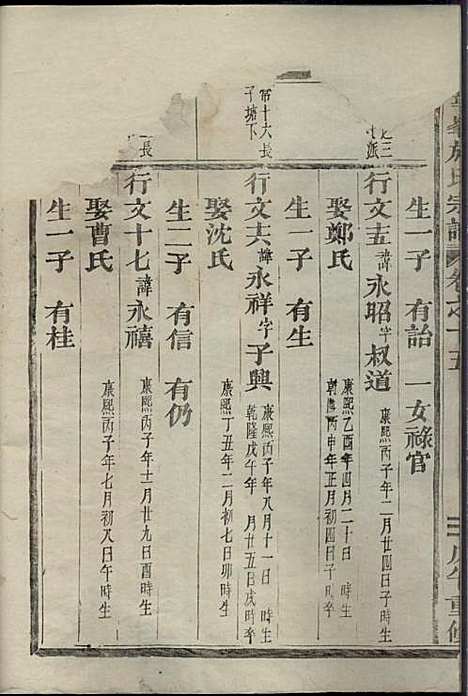 施氏宗譜 卷之十五
生一子 有詒 一女祿官
行文十五諱永昭字叔道 康熙丙子年二月廿四日子時生
娶鄭氏 康熙乙酉年四月二十日 時生 乾隆丙申年正月初四日子時卒
生一子 有生
常十六長子塘下
行文十六諱永祥字子興 康熙丙子年八月十一日 時生 乾隆戊午年 月廿五日戌時卒
娶沈氏 康熙丁丑年二月初七日卯時生
生二子 有信 有仍
長
行文十七諱永禧 康熙丙子年十二月廿九日酉時生
娶曹氏 康熙丙子年七月初八日午時生
生一子 有桂